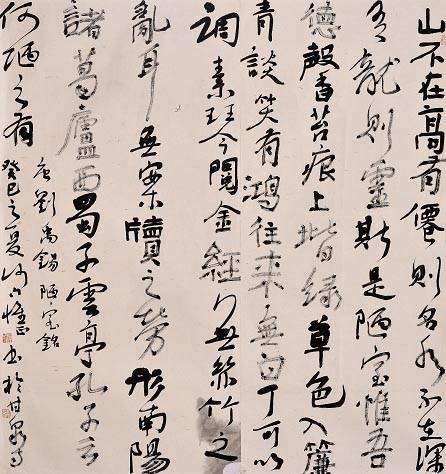 山不在高有僊則名水不在深
有龍則靈斯是陋室惟吾
德馨苔痕上堦綠草色入簾
青談笑有鴻往來無白丁可以
調素琴今閱金經無絲竹之
亂耳無案牘之勞形南陽
諸葛廬西蜀子雲亭孔子云
何陋之有
唐劉禹錫陋室銘
癸巳之夏書於甘泉寺